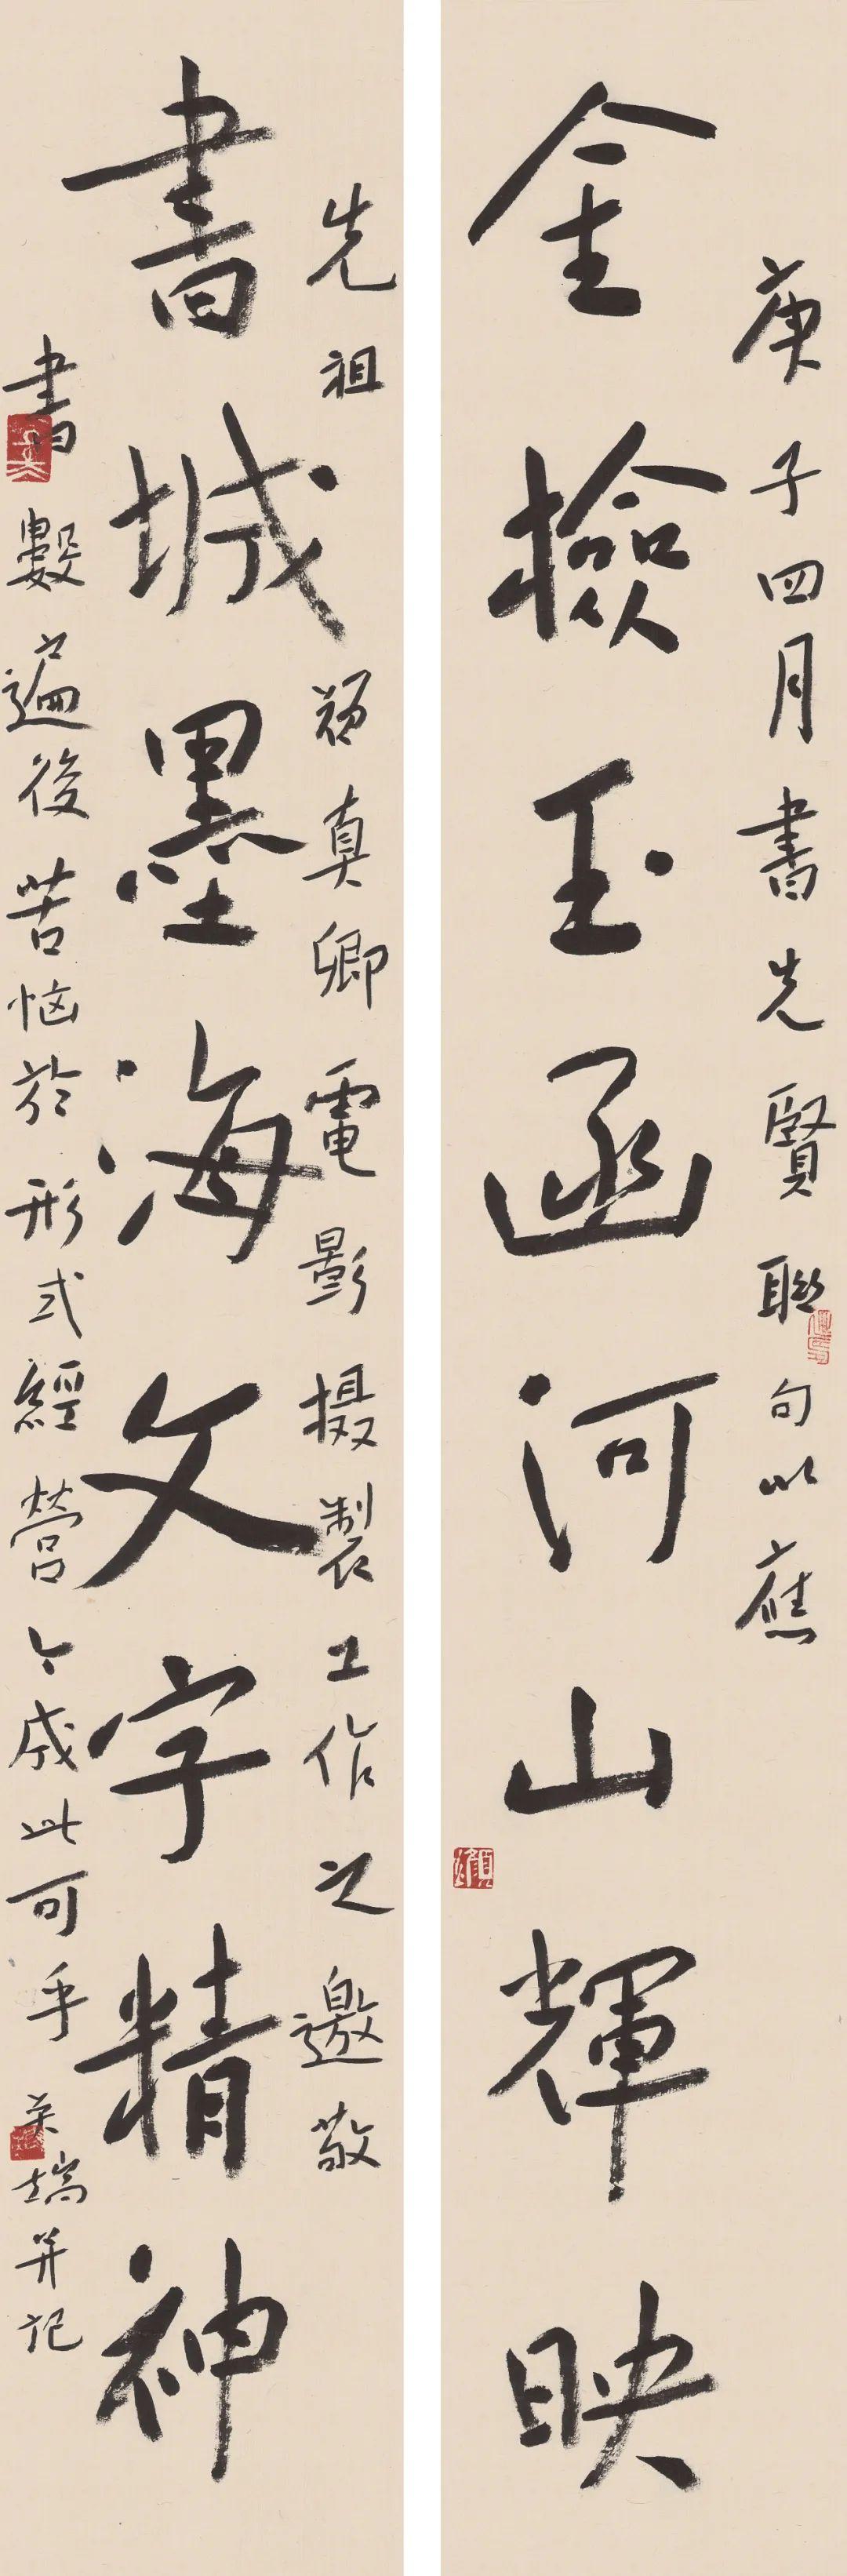 庚子四月書先賢聯句以應
金檢玉函河山輝映
先祖顏真卿電影摄製工作之邀敬
書城墨海文字精神
書數遍後苦恼於形式經營今成此可乎
端并記